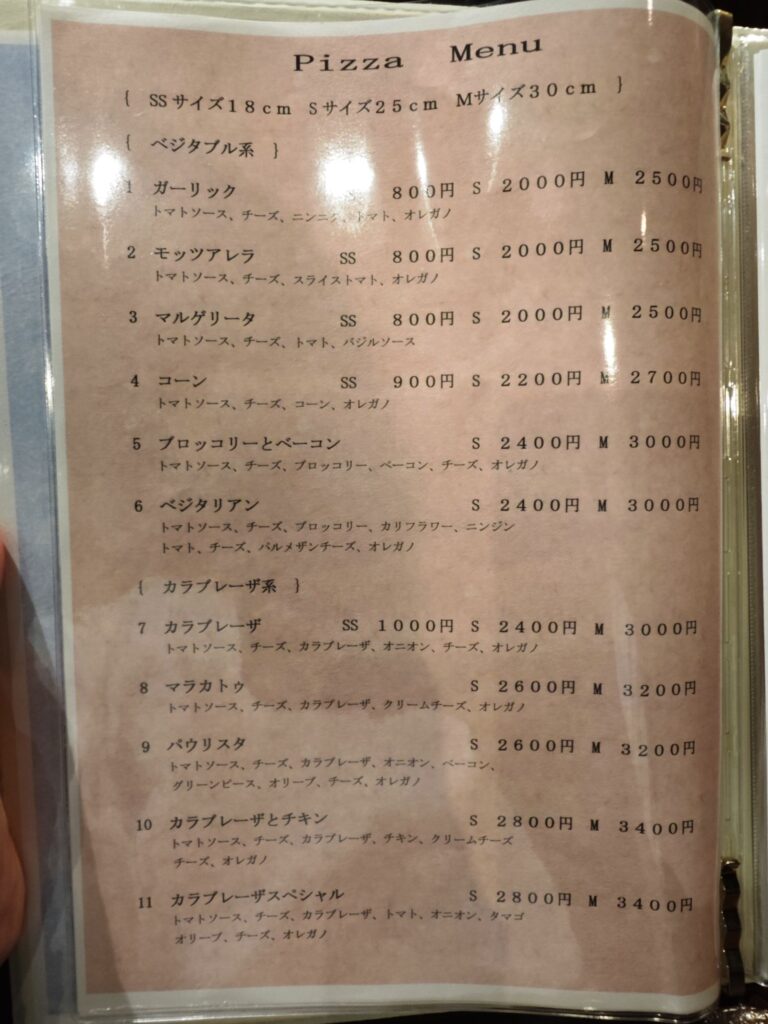 Pizza Menu
{ SSサイズ18cm Sサイズ25cm Mサイズ30cm }
{ ベジタブル系 }
1 ガーリック 800円 S 2000円 M 2500円
トマトソース、チーズ、ニンニク、トマト、オレガノ
2 モッツアレラ SS 800円 S 2000円 M 2500円
トマトソース、チーズ、スライストマト、オレガノ
3 マルゲリータ SS 800円 S 2000円 M 2500円
トマトソース、チーズ、トマト、バジルソース
4 コーン SS 900円 S 2200円 M 2700円
トマトソース、チーズ、コーン、オレガノ
5 ブロッコリーとベーコン S 2400円 M 3000円
トマトソース、チーズ、ブロッコリー、ベーコン、チーズ、オレガノ
6 ベジタリアン S 2400円 M 3000円
トマトソース、チーズ、ブロッコリー、カリフラワー、ニンジン
トマト、チーズ、パルメザンチーズ、オレガノ
{ カラブレーザ系 }
7 カラブレーザ SS 1000円 S 2400円 M 3000円
トマトソース、チーズ、カラブレーザ、オニオン、チーズ、オレガノ
8 マラカトゥ S 2600円 M 3200円
トマトソース、チーズ、カラブレーザ、クリームチーズ、オレガノ
9 パウリスタ S 2600円 M 3200円
トマトソース、チーズ、カラブレーザ、オニオン、ベーコン、
グリーンピース、オリーブ、チーズ、オレガノ
10 カラブレーザとチキン S 2800円 M 3400円
トマトソース、チーズ、カラブレーザ、チキン、クリームチーズ
チーズ、オレガノ
11 カラブレーザスペシャル S 2800円 M 3400円
トマトソース、チーズ、カラブレーザ、トマト、オニオン、タマゴ
オリーブ、チーズ、オレガノ